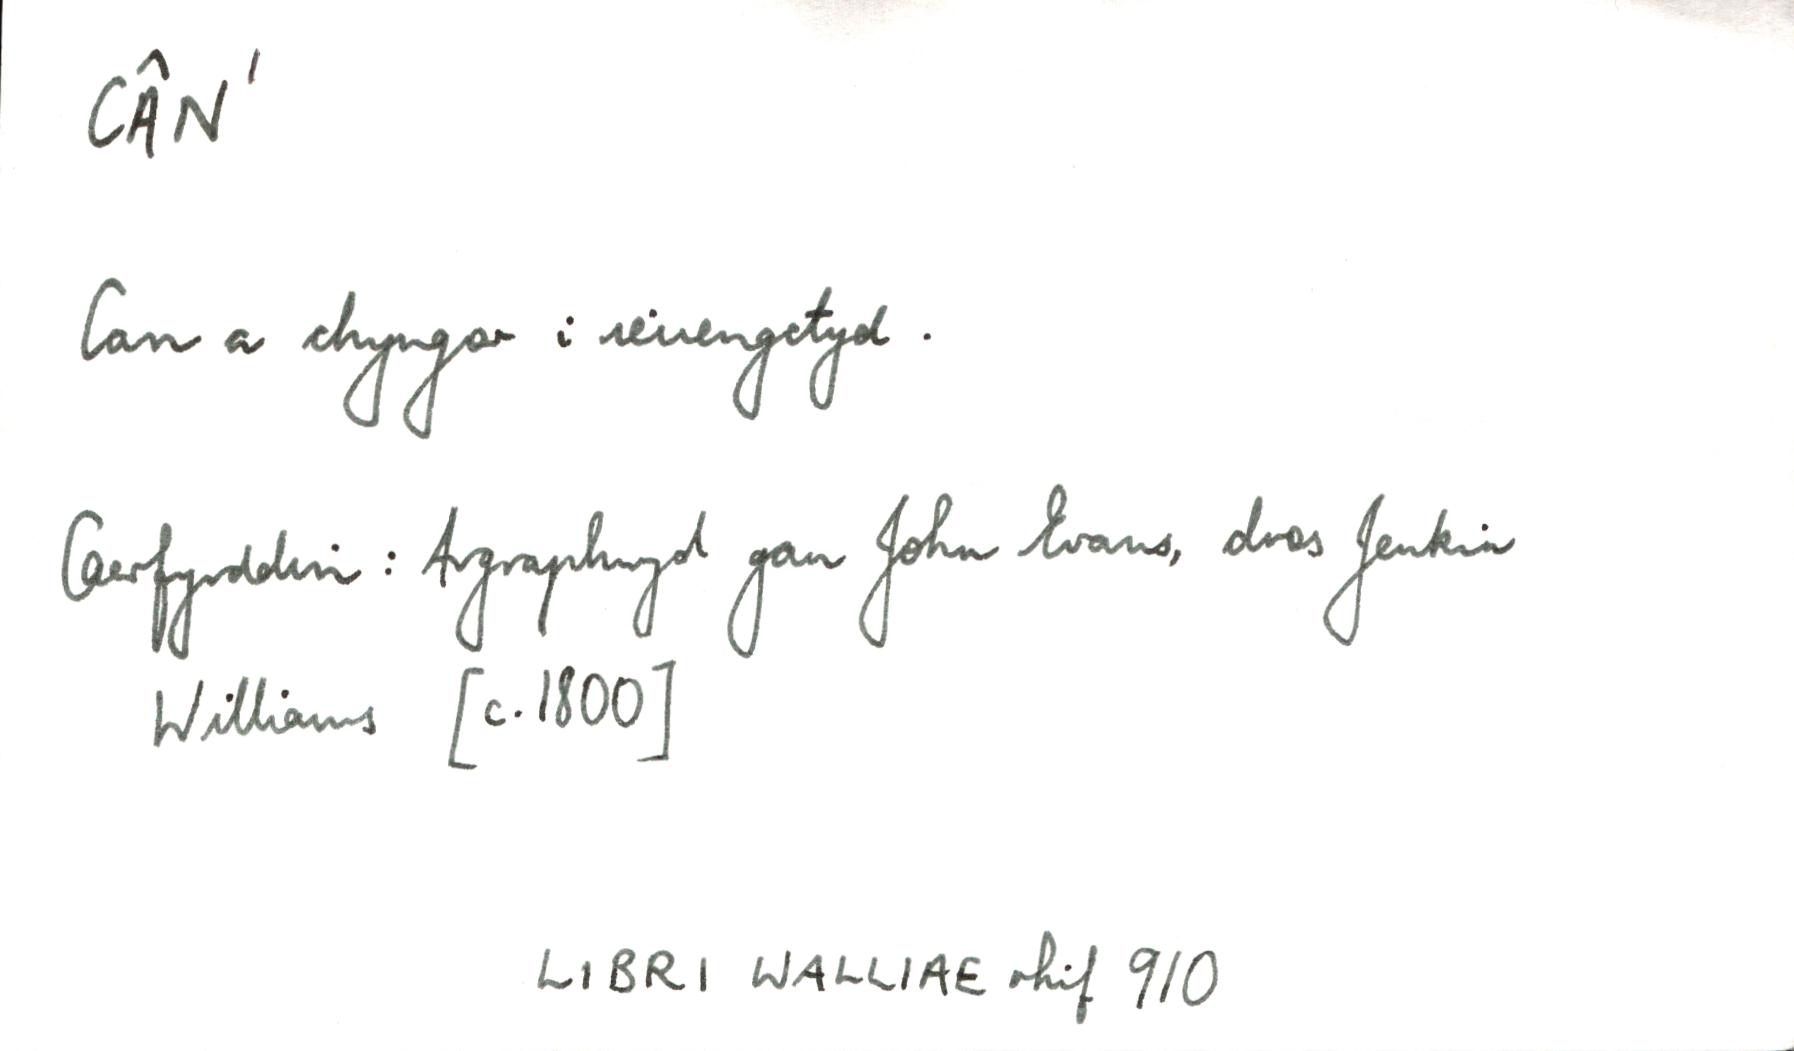 CÂN'
Can a chyngor i ieuengctyd.
Caerfyrddin: Argraphwyd gan John Evans, dros Jenkin
Williams [c. 1800]
LIBRI WALLIAE rhif 910